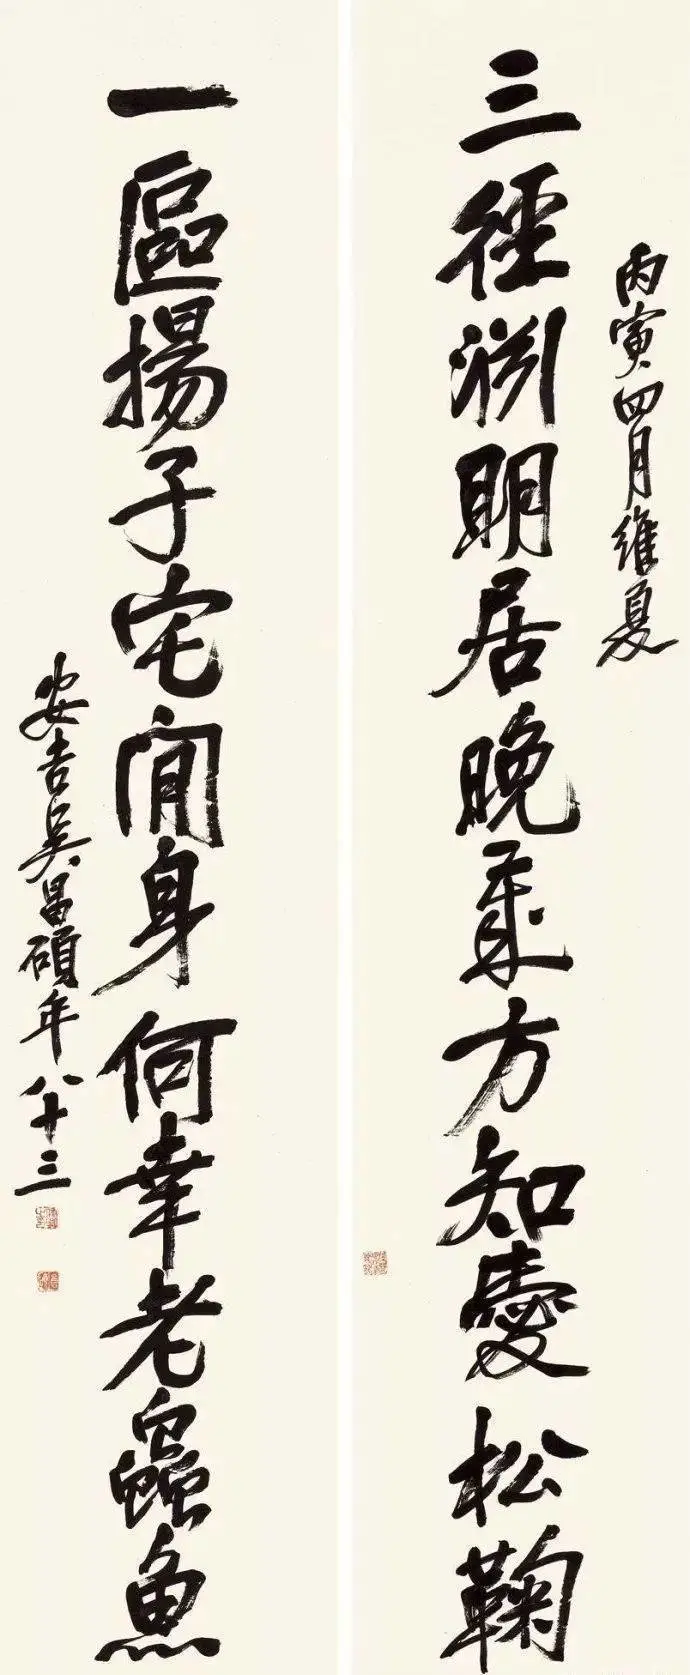 丙寅四月維夏
三徑渊明居晚歲方知愛松鞠
一區揚子宅閒身何幸老蟲魚
安吉吳昌碩年八十三